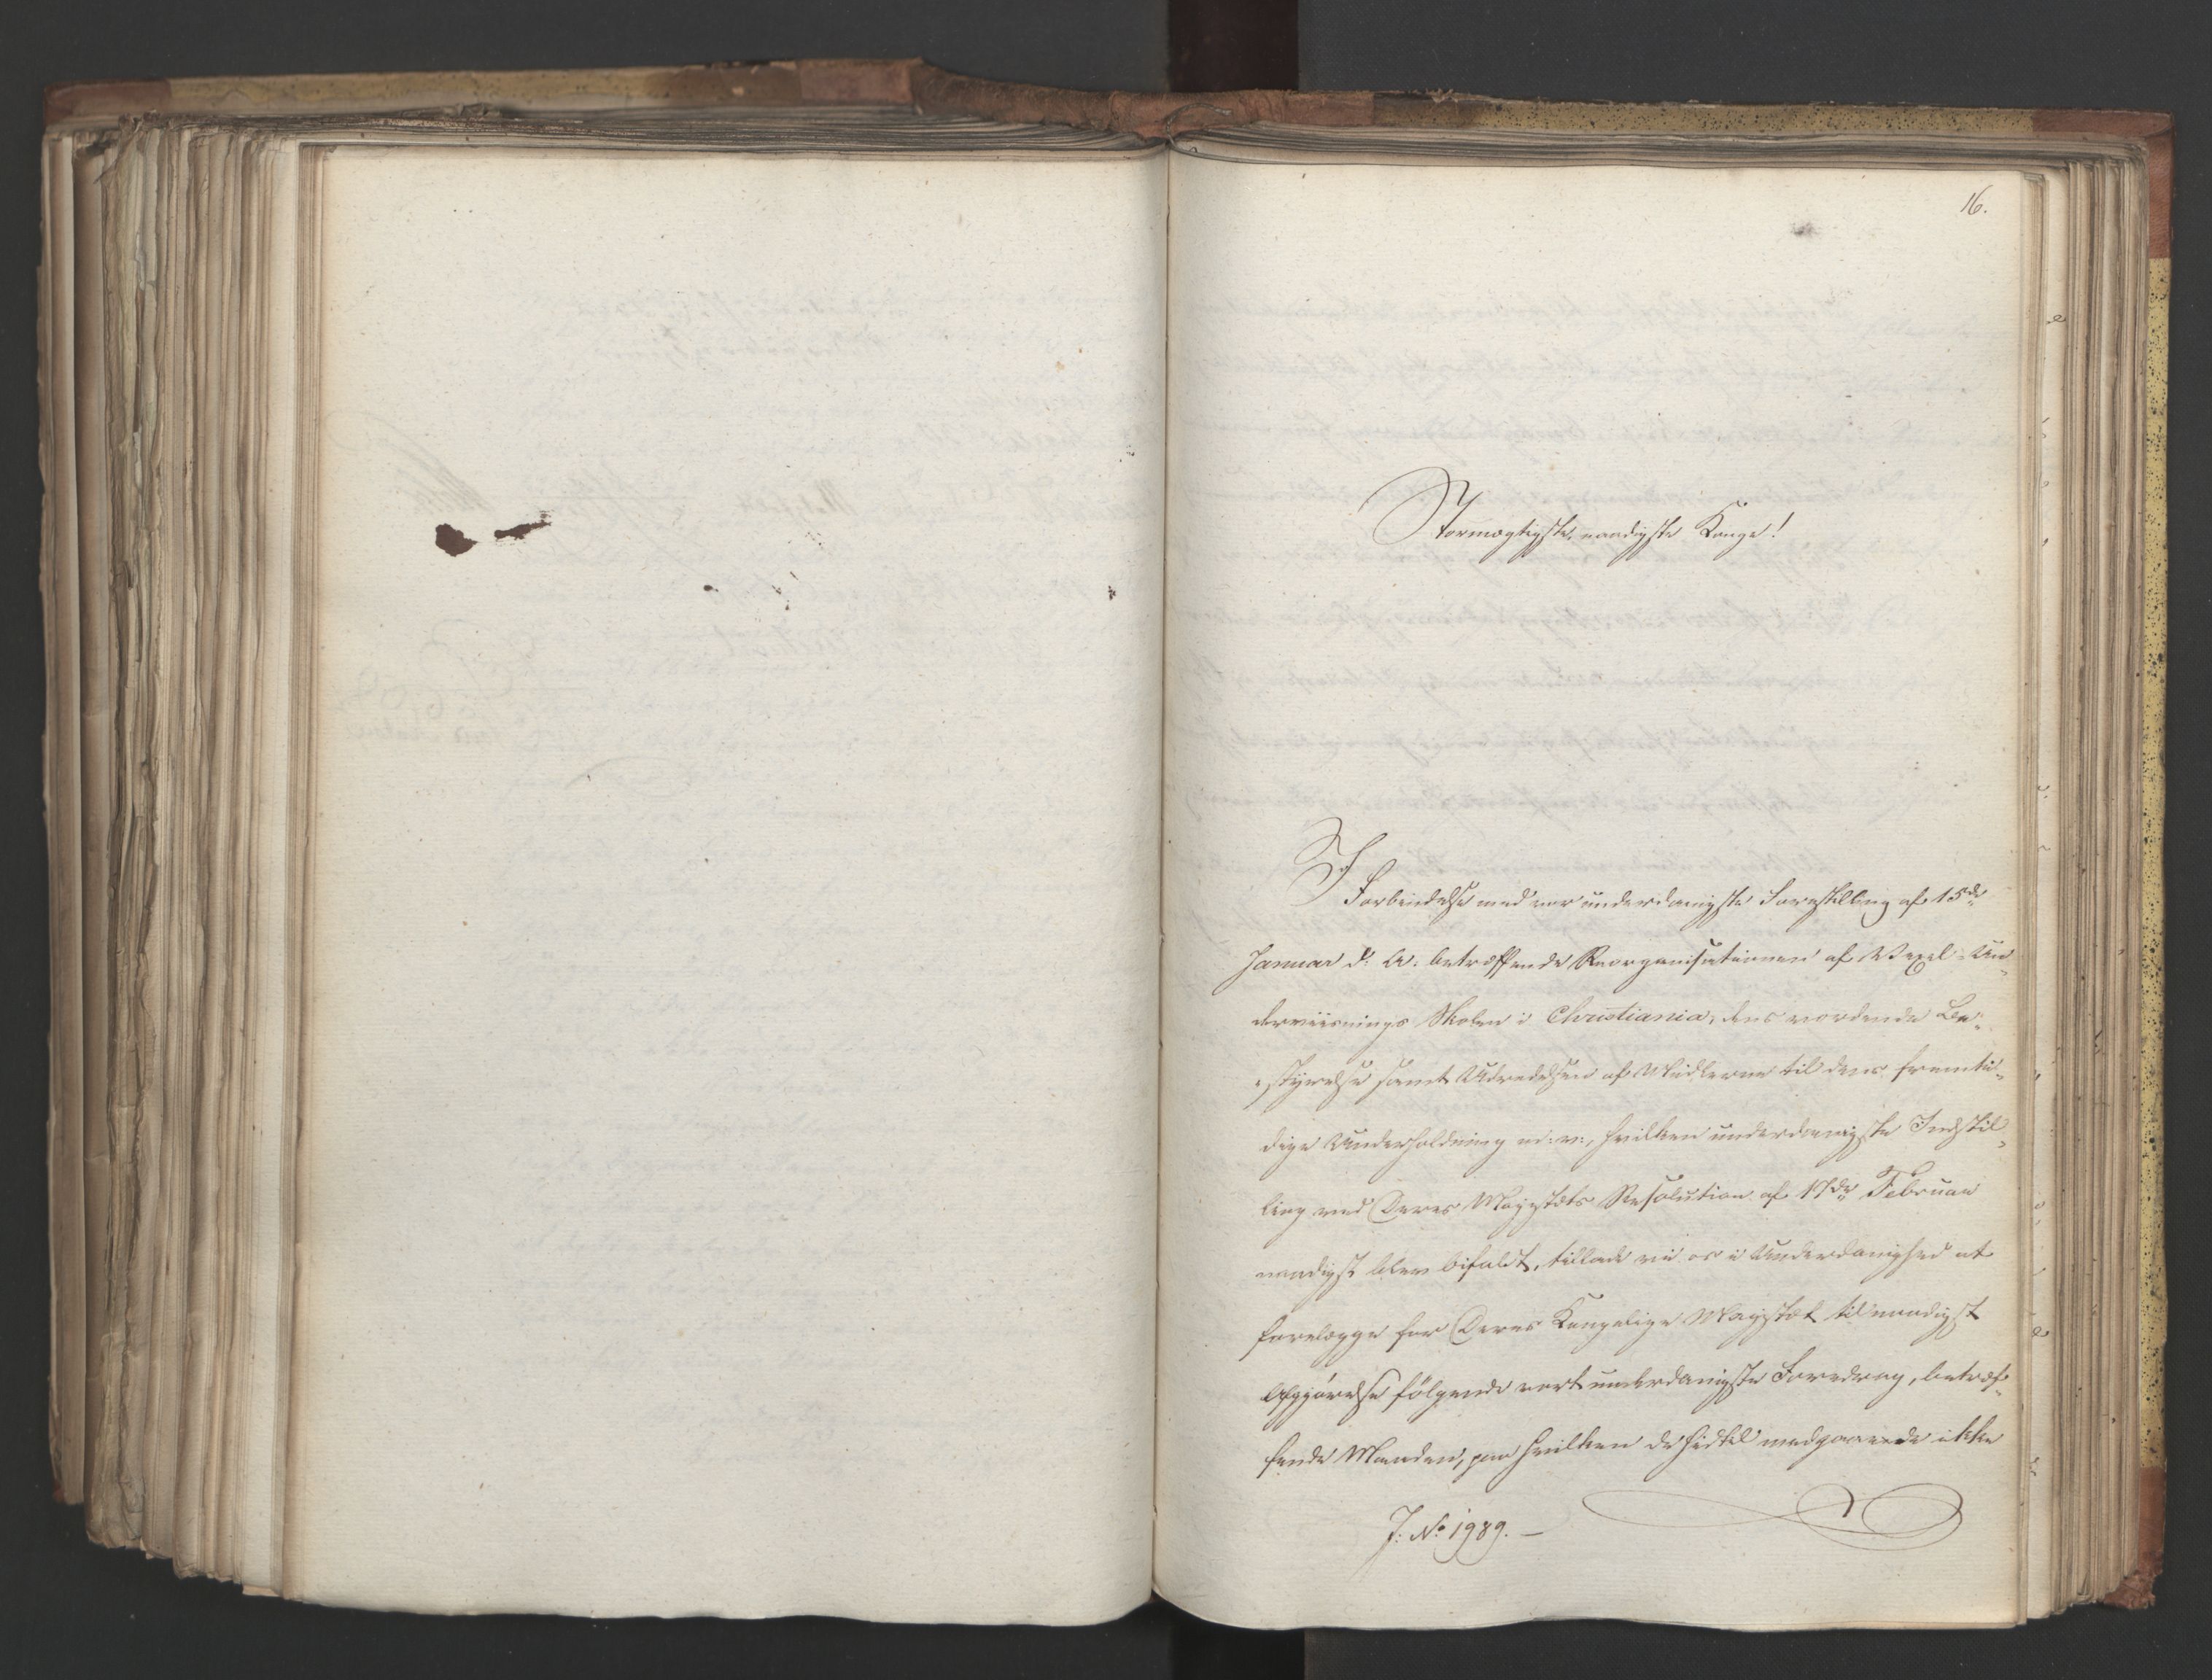 16.
Stormægtigste, naadigste Konge!
I Forbindelse med vor underdanigste Forestilling af 15de
Januar d: A: betræffende Reorganisationen af Vexel-Un„
derviisnings Skolen i Christiania, dens vordende Be„
„styrelse samt Udredelsen af Midlerne til dens fremti„
dige Underholdning m: v:, hvilken underdanigste Indstil„
ling ved Deres Majestæts Resolution af 17de Februar
naadigst blev bifaldt, tillade vi os i Underdanighed at
forelægge for Deres Kongelige Majestæt til naadigst
Afgjørelse følgende vort underdanigste Foredrag, betræf„
fende Maaden, paa hvilken de hidtil medgaaede ikke
J: No 1989. —